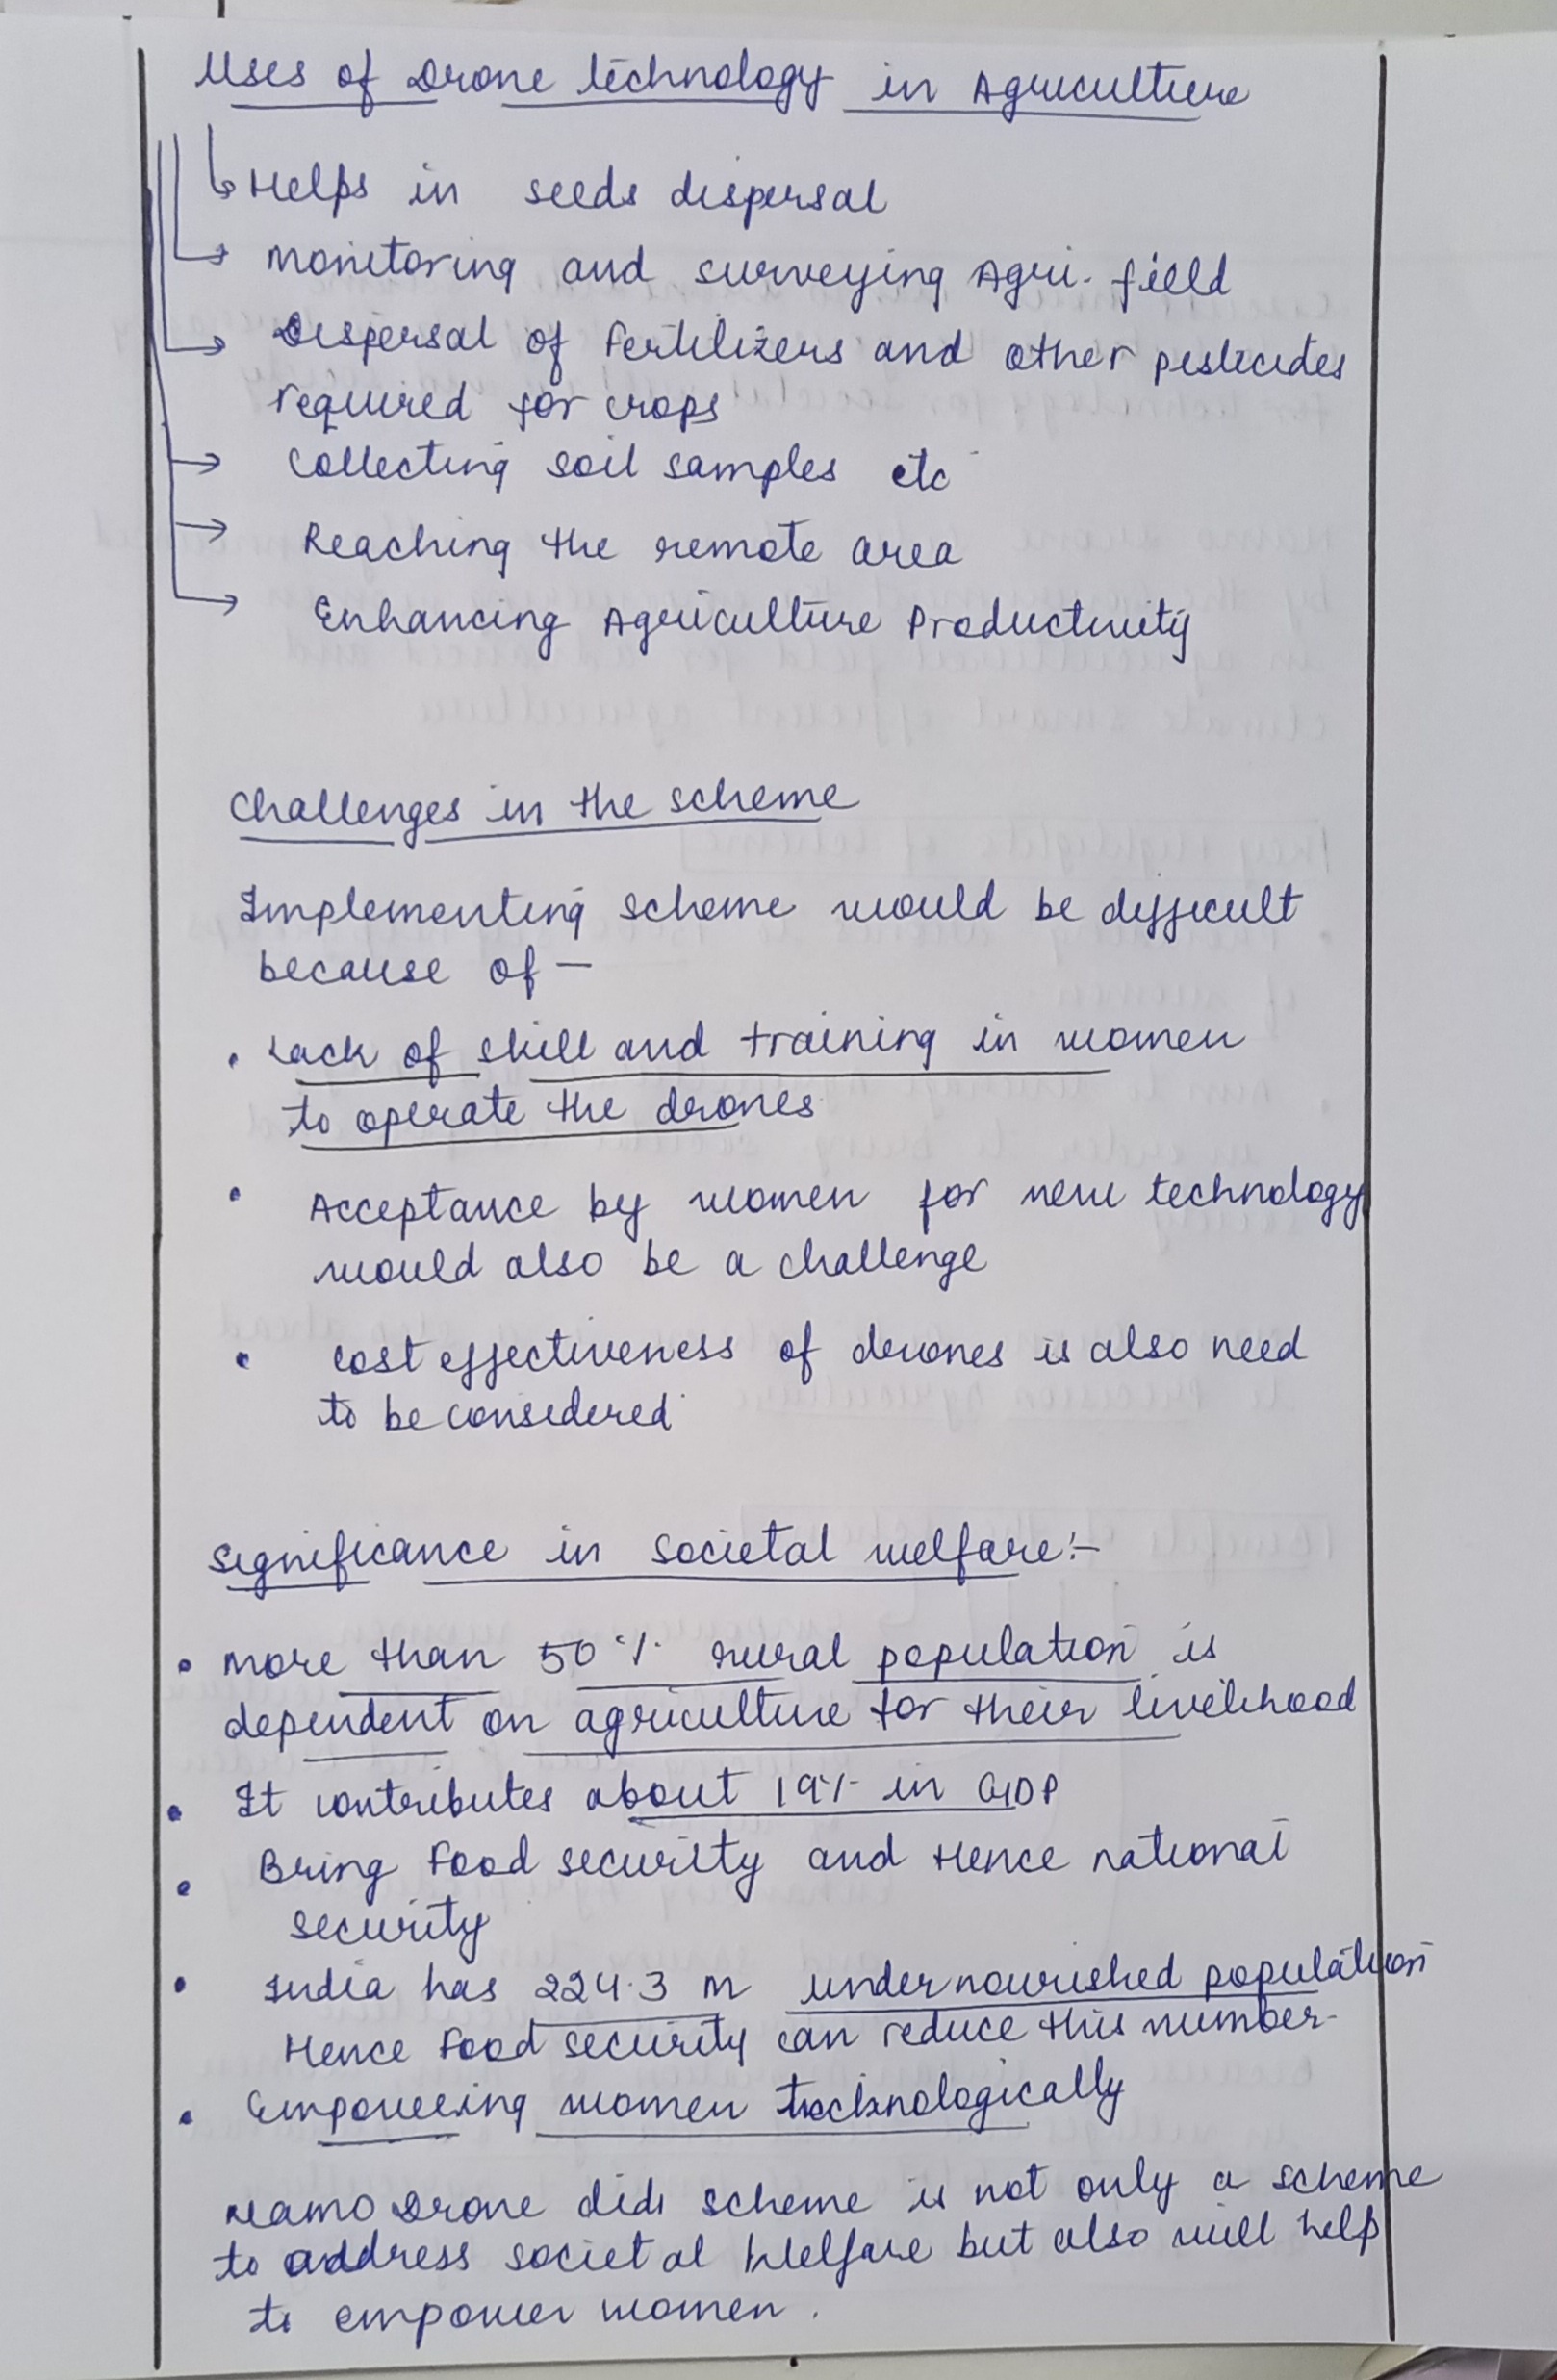 Uses of Drone technology in Agriculture
Helps in seeds dispersal
Monitoring and surveying Agri. field
Dispersal of Fertilizers and other pesticides
required for crops
Collecting soil samples etc
Reaching the remote area
Enhancing Agriculture Productivity
Challenges in the scheme
Implementing scheme would be difficult
because of —
• Lack of skill and training in women
to operate the drones
• Acceptance by women for new technology
would also be a challenge
• cost effectiveness of drones is also need
to be considered
Significance in societal welfare:-
• more than 50% rural population is
dependent on agriculture for their livelihood
• It contributes about 19% in GDP
• Bring Food security and Hence national
security
• India has 224.3 m undernourished population
Hence Food security can reduce this number
• Empowering women technologically
Namo Drone didi scheme is not only a scheme
to address societal Welfare but also will help
to empower women.